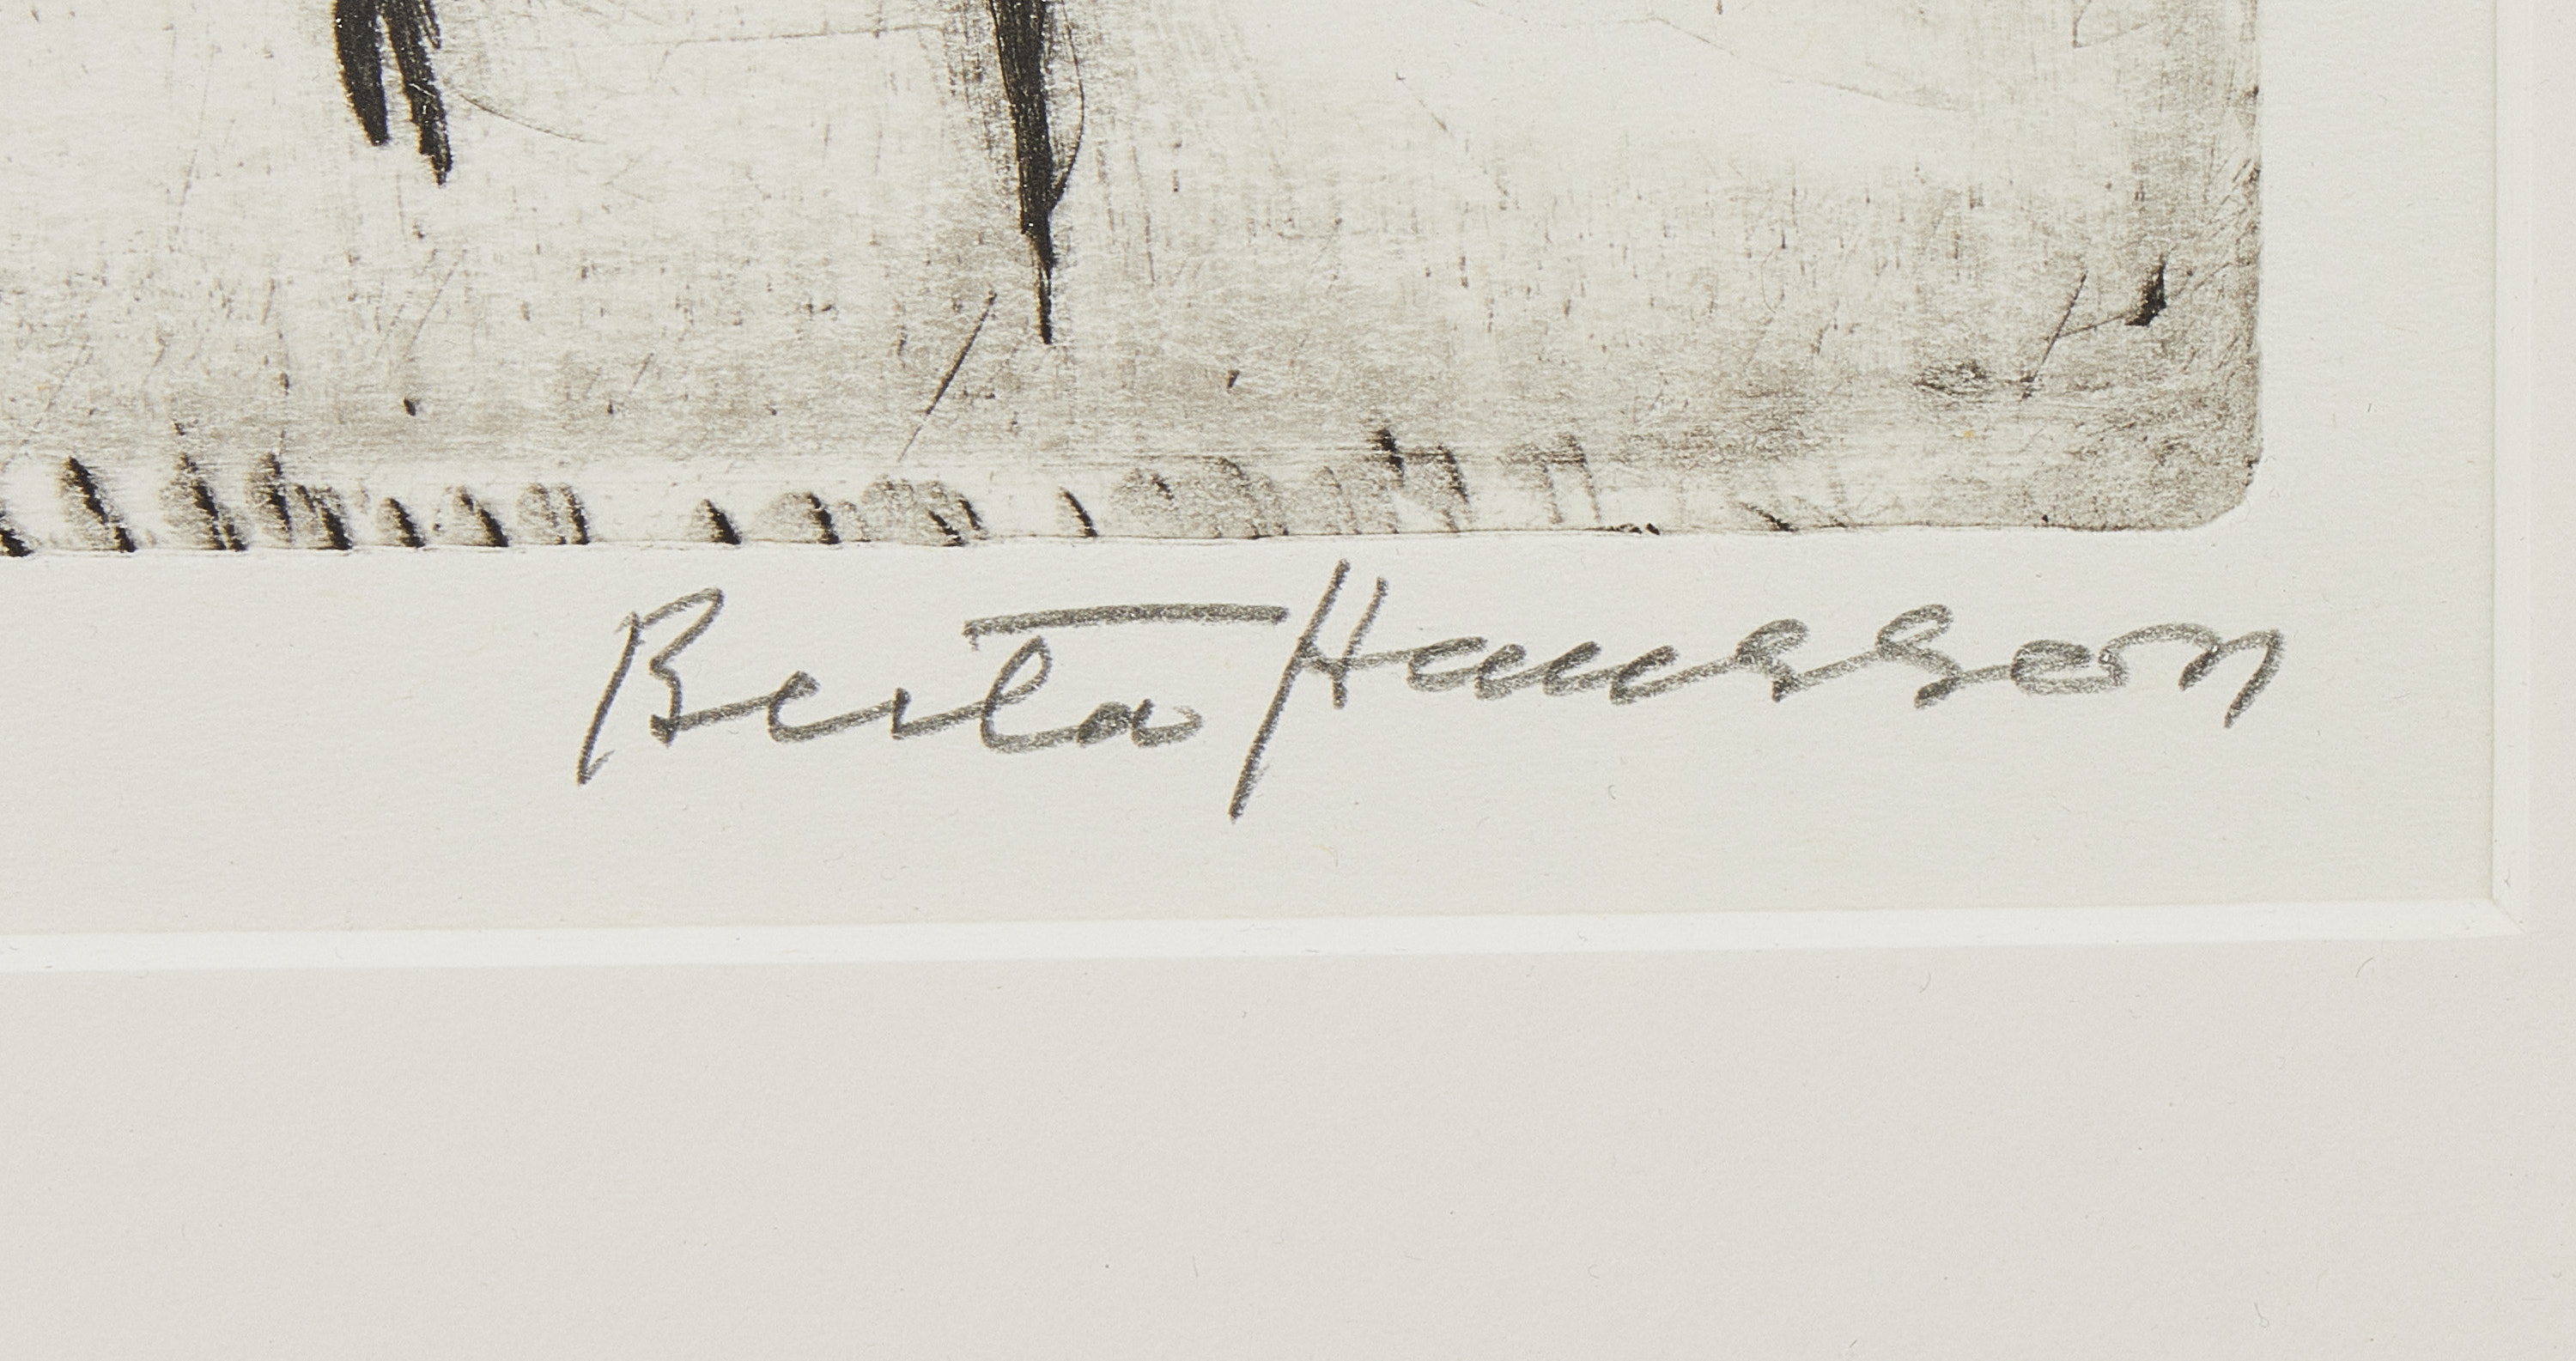 Berta Hansson